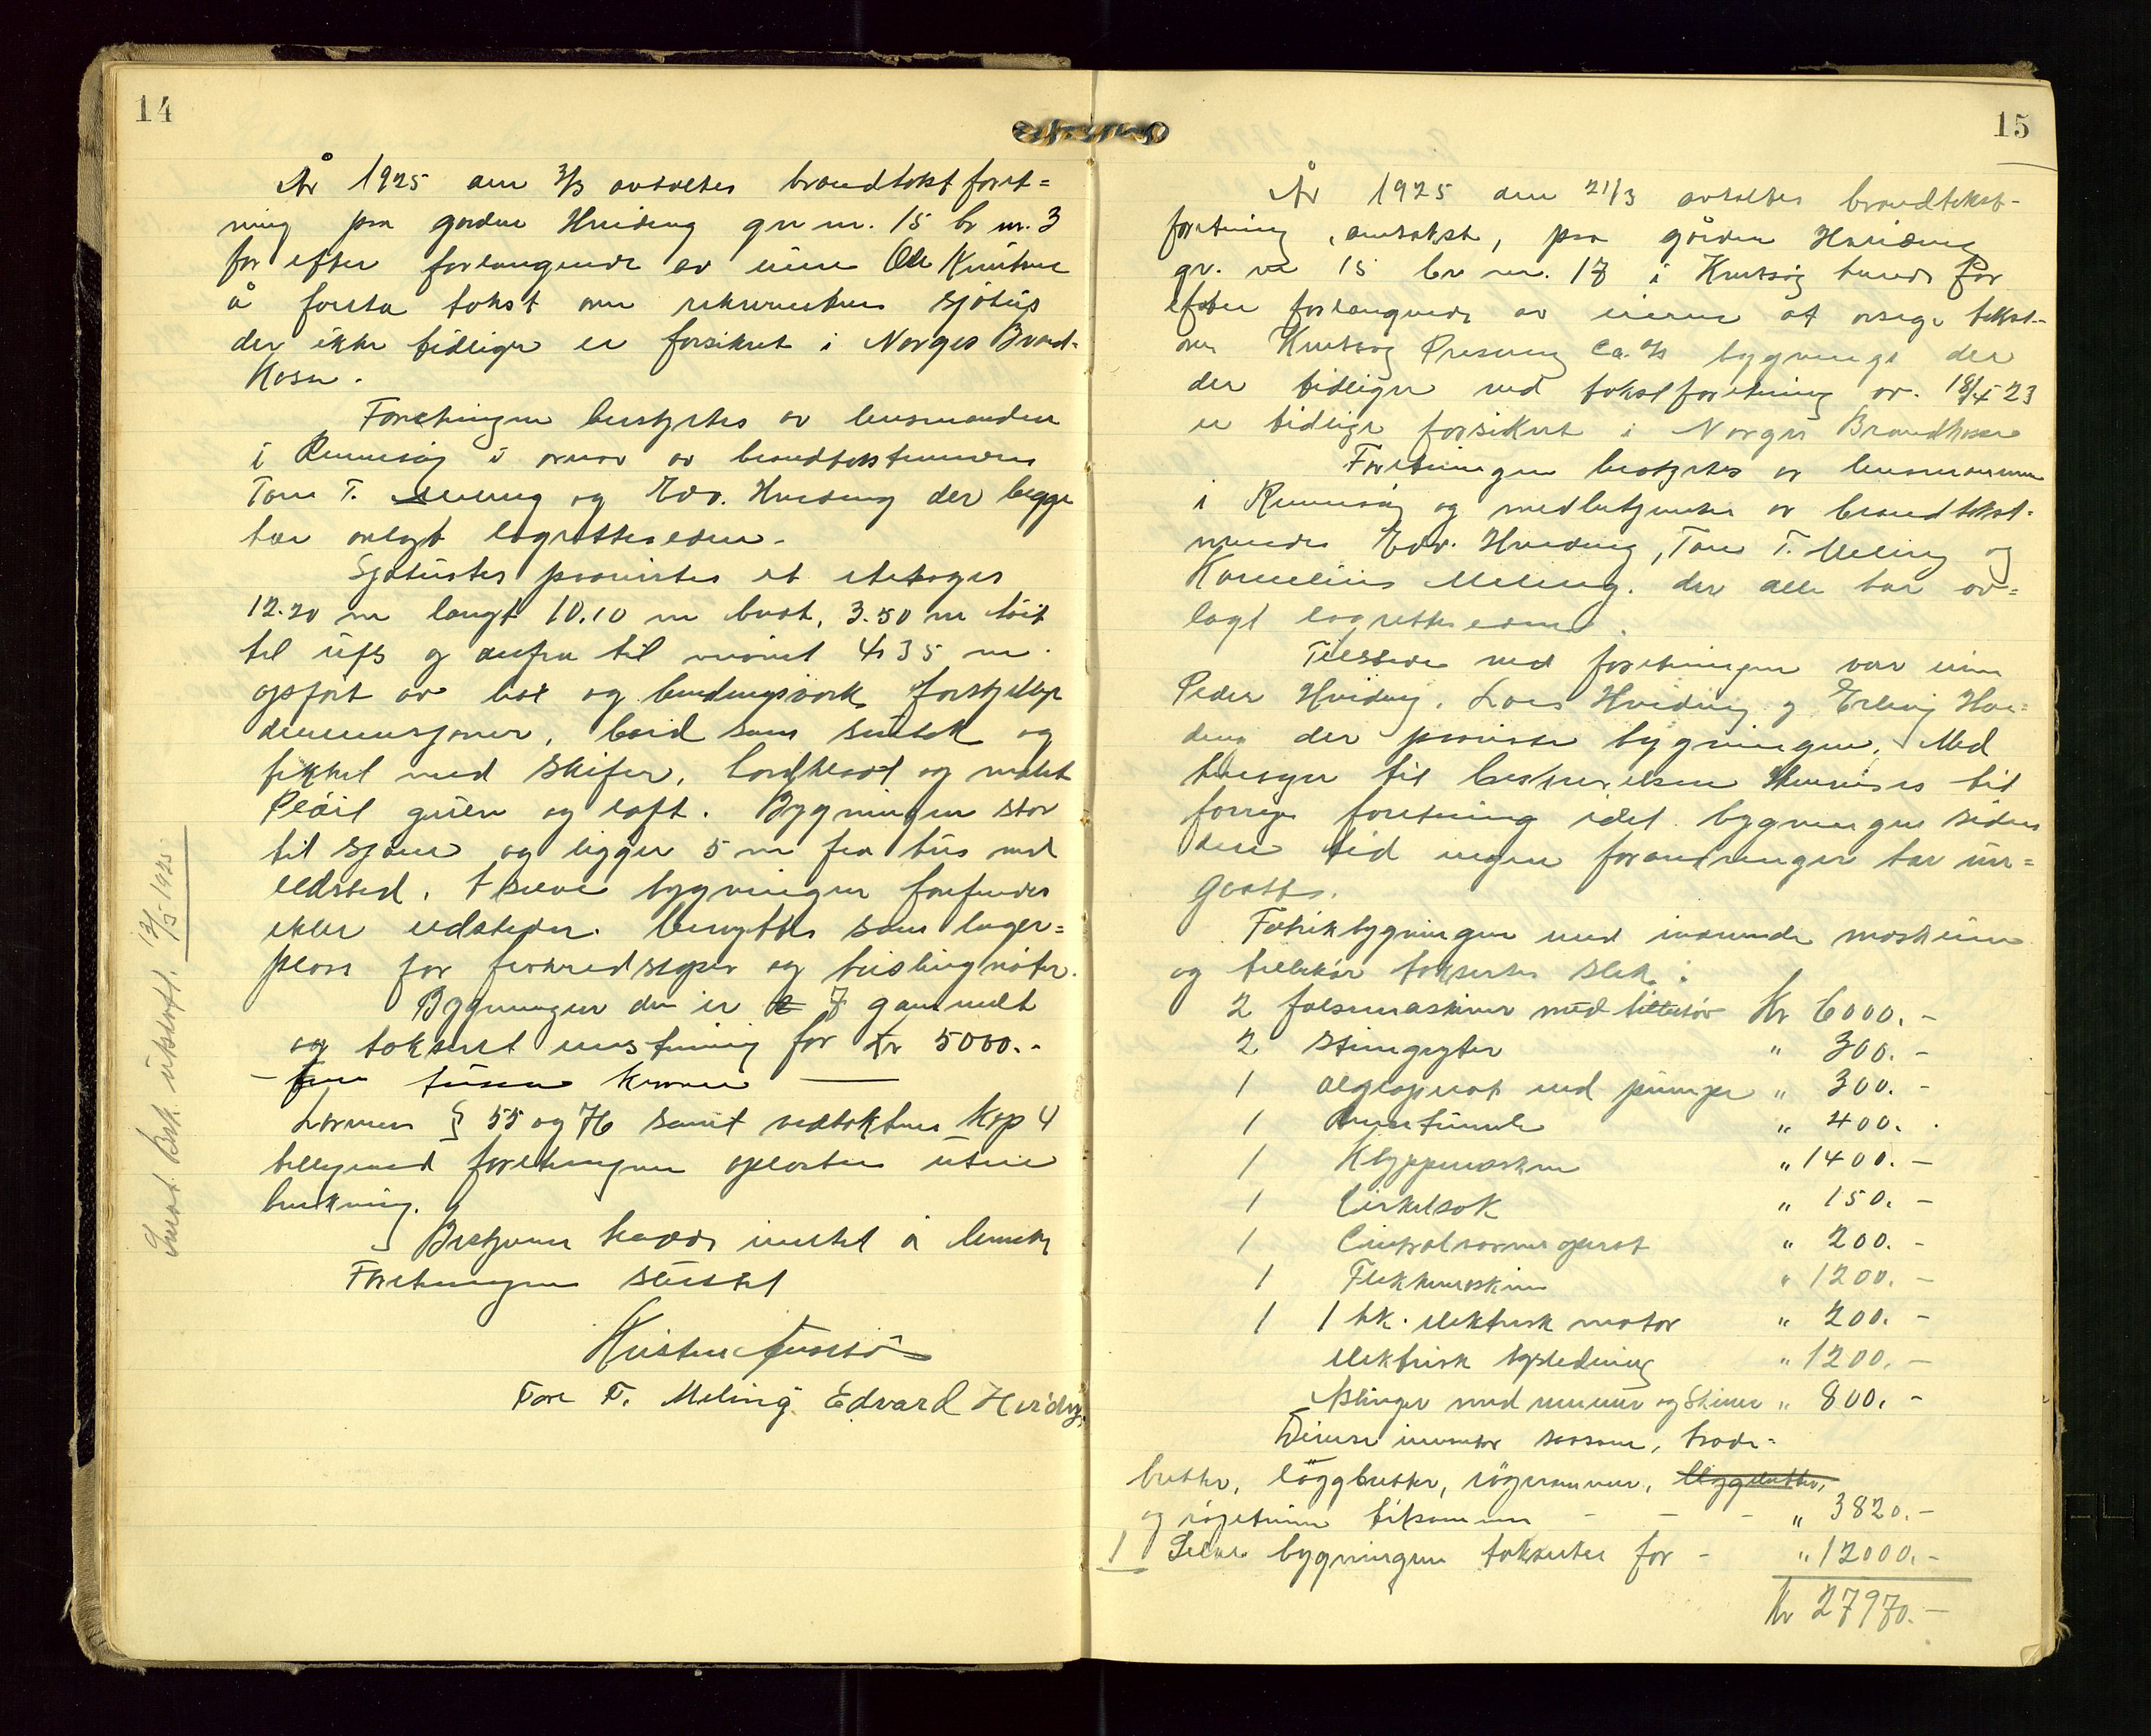 14
År 1925 den 3/3 avholtes brandtakstforret=
ning paa gården Hviding gr nr. 15 br nr. 3
for efter forlangende av eieren Ole Knutsen
å foreta takst over sjøhus
der ikke tidliger er forsikret i Norges Brand-
kasse.
Forretningen bestyrtes av lensmanden
i Rennesøy i nærvær av brandtakstmennene
Tore T. Meling og Edv. Hviding der begge
har avlagt lagretteseden.
Sjøhuset paavistes et etetages
12.20 m langt 10.10 m bredt, 3.50 m høit
til ufs og derfra til mønet 4,35 m.
opført av bol og bindingsverk forskjellige
dimensjoner, bord som sutak og
tekket med skifer, bordkledt og malet
Pløid gulv og loft. Bygningen står
til sjøen og ligger 5 m fra hus med
ildsted. I selve bygningen forefindes
ikke ildsteder. Benyttes som lager=
plass for fiskeredskaper og brislingnøter.
Bygningen der er 7 gammelt
og taksert enstemmig for kr 5000.-
- fem tusen kroner —
Lovens § 55 og 76 samt vedtektenes kap 4
tillegned forretningen oplæstes uten
berkning.
Bestyreren hadde intet å bemerke
Forretningen sluttet
Tore T. Meling Edvard Hviding
Innt. Bok utskrift 12/5-1925
15
År 1925 den 21/3 avholtes brandtakst-
forretning, omtakst, paa gården Hviding
gr. nr 15 br nr. 17 i Rennesøy herred for
efter forlangende av eieren at avsige takst
over Rennesøy Preserving Co. A/S bygninge der
der tidliger ved takstforretning av. 18/4-23
er tidlige forsikret i Norges Brandkasse
Forretningen bestyrtes av lensmannen
i Rennesøy og medbetjentes av brandtakst-
mennene Edv. Hviding, Tore T. Meling og
Kornelius Meling. der alle har av=
lagt lagretteseden.
Tilstede ved forretningen var eieren
Peder Hviding, Lars Hviding og Erling Hvi=
ding der paaviste bygningen. Med
hensyn til beskrivelsen henvises til
forrige forretning idet bygningen siden
den tid ingen forandringer har un=
gaatt.
Fabrikbygningen med maskiner
og tilbehør takseres slik:
2 falsemaskiner med tilbehør Kr 6000.-
2 " 300.-
1 med pumpe " 300.-
1 " 400.-
1 Klyppmaskin " 1400.-
1 Cirkelsak " 150.-
1 Centralvarmeaparat " 200.-
1 Tlekkmaskin " 1200.-
1 1 hk. elektrisk motor " 200.-
elektrisk lysledning " 1200.-
med og Skinner " 800.-
Diverse inventar saasom, trade=
bretter, löggbretter, røgerammer,
og tilsammen - - - " 3820.-
1 Selve bygningen takseres for - " 12000.-
Kr 27970.-